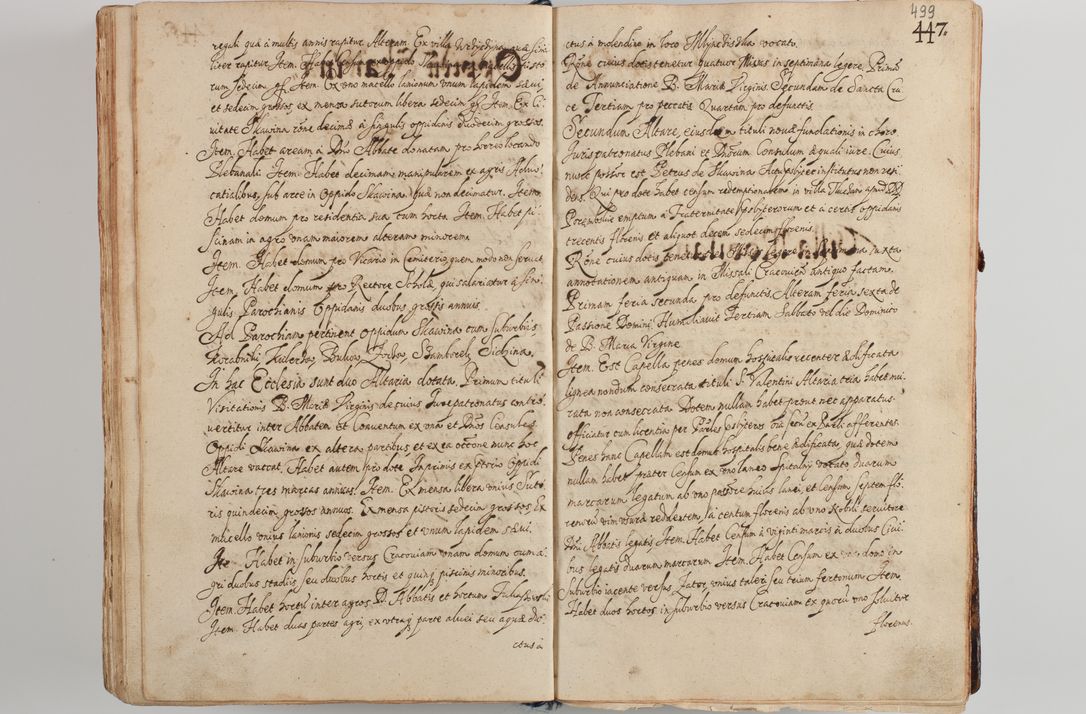 regali quā à multis annis rapitur. Alteram. Ex villa
liter rapitur. Item. Habet
rum sedecim gſ. Item. Ex vno macello lanionum vnum lapidem sæui
et sedecim grossos, ex mensa sutorum libera sedecim gſ. Item. Ex Ci-
uitate Skawina rōne decimæ à singulis oppidanis duodecim grossos.
Item. Habet aream à Dño Abbate donatam pro horreo locando
Plebanali. Item. Habet decimam manipularem ex agris Aduo-
catialibus, sub arce in Oppido Skawina quæ non decimatur. Item.
Habet domum pro residentia sua cum horto. Item. Habet pi-
scinam in agro vnam maiorem alteram minorem.
Item. Habet domum pro Vicario in Cemiterio, quem modo non seruat
Item. Habet domum pro Rectore Scholæ, qui salariatur à sin-
gulis Parochianis Oppidanis duobus grossis annuis.
Ad Parochiam pertinent oppidum Skawina cum suburbijs,
Korabniki, Kulerzow, Buków, Zorzow, Sidzina.
In hac Ecclesia sunt duo Altaria dotata. Primum tituli
Visitationis B. Mariæ Virginis de cuius Iure patronatus contro-
uertitur inter Abbatem et Conuentum ex vna et Dños Consules
Oppidi Skawina ex altera partibus et ex ea occōne nunc hoc
Altare vaccat. Habet autem pro dote Inprimis ex Oppidi
Skawina tres marcas annuas. Item. Ex mensa libera vnius Suto-
ris quindecim grossos annuos. Ex mensa pistoris sedecim grossos. Ex
micello vnius lanionis sedecim grossos et vnum lapidem sæui.
Ite Habet in suburbio versus Cracouiam vnam domum cum a-
gri duobus stadiis, seu duobus hortis et quinq piscinis minoribus.
Item. Habet hortū inter agros D. Abbatis et hortum
Item. Habet duas partes agri, ex vtraq parte aluei seu aquæ du-
ctus à
499
447.
ctus à molendino in loco vocato.
Rōne cuius dotis tenetur quatuor Missas in septimana legere. Primā
de Annunciatione B. Mariæ Virginis. Secundam de Sancta Cru-
ce Tertiam pro peccatis Quartam pro defunctis.
Secundum Altare, eiusdem tituli nouæ fundationis in choro
Iuris patronatus Plebani et Dñorum Consulum æquali iure. Cuius
nunc possr est Petrus de Skawina institutus non resi-
dens. Qui pro dote habet censum redemptionalem in villa apud DD.
emptum a Fraternitate Presbyterorum et à certis oppidanis
trecentis florenis et aliquot decem sedecim florenis.
Rōne cuius dotis tenetur legere iuxta
annotationem antiquam in Missali Cracouieñ antiquo factam.
Primam feria secunda pro defunctis, Alteram feria sexta de
Passione Domini, Humiliauit Tertiam Sabbato vel die Dominico
de B. Maria Virgine.
Item. Est Capella penes domum hospitalis recenter ædificata
lignea nondum consecrata tituli S. Valentini Altaria tria habet mu-
rata non consecrata Dotem nullam habet prout nec apparatus.
officiatur cum licentia per Presbyteros afferentes.
Penes hanc Capellam est domus hospitalis bene ædificata, quæ dotem
nullam habet præter Censum ex vno laneo Spitalny vocato duarum
marcarum legatum ab vno huius lanei, et Censum septem flo-
renorū reddentem, à centum florenis ab vno Nobili seruitore
Dñi Abbatis legatis, Item. Habet Censum à viginti marcis à duobus Ciui-
bus legatis duarum marcarum Item. Habet Censum ex vna domo in
Suburbio iacente versus Zator, vnius taleri seu trium fertonum Item.
Habet duos hortos in suburbio versus Cracouiam ex quorū vno soluitur
florenus.